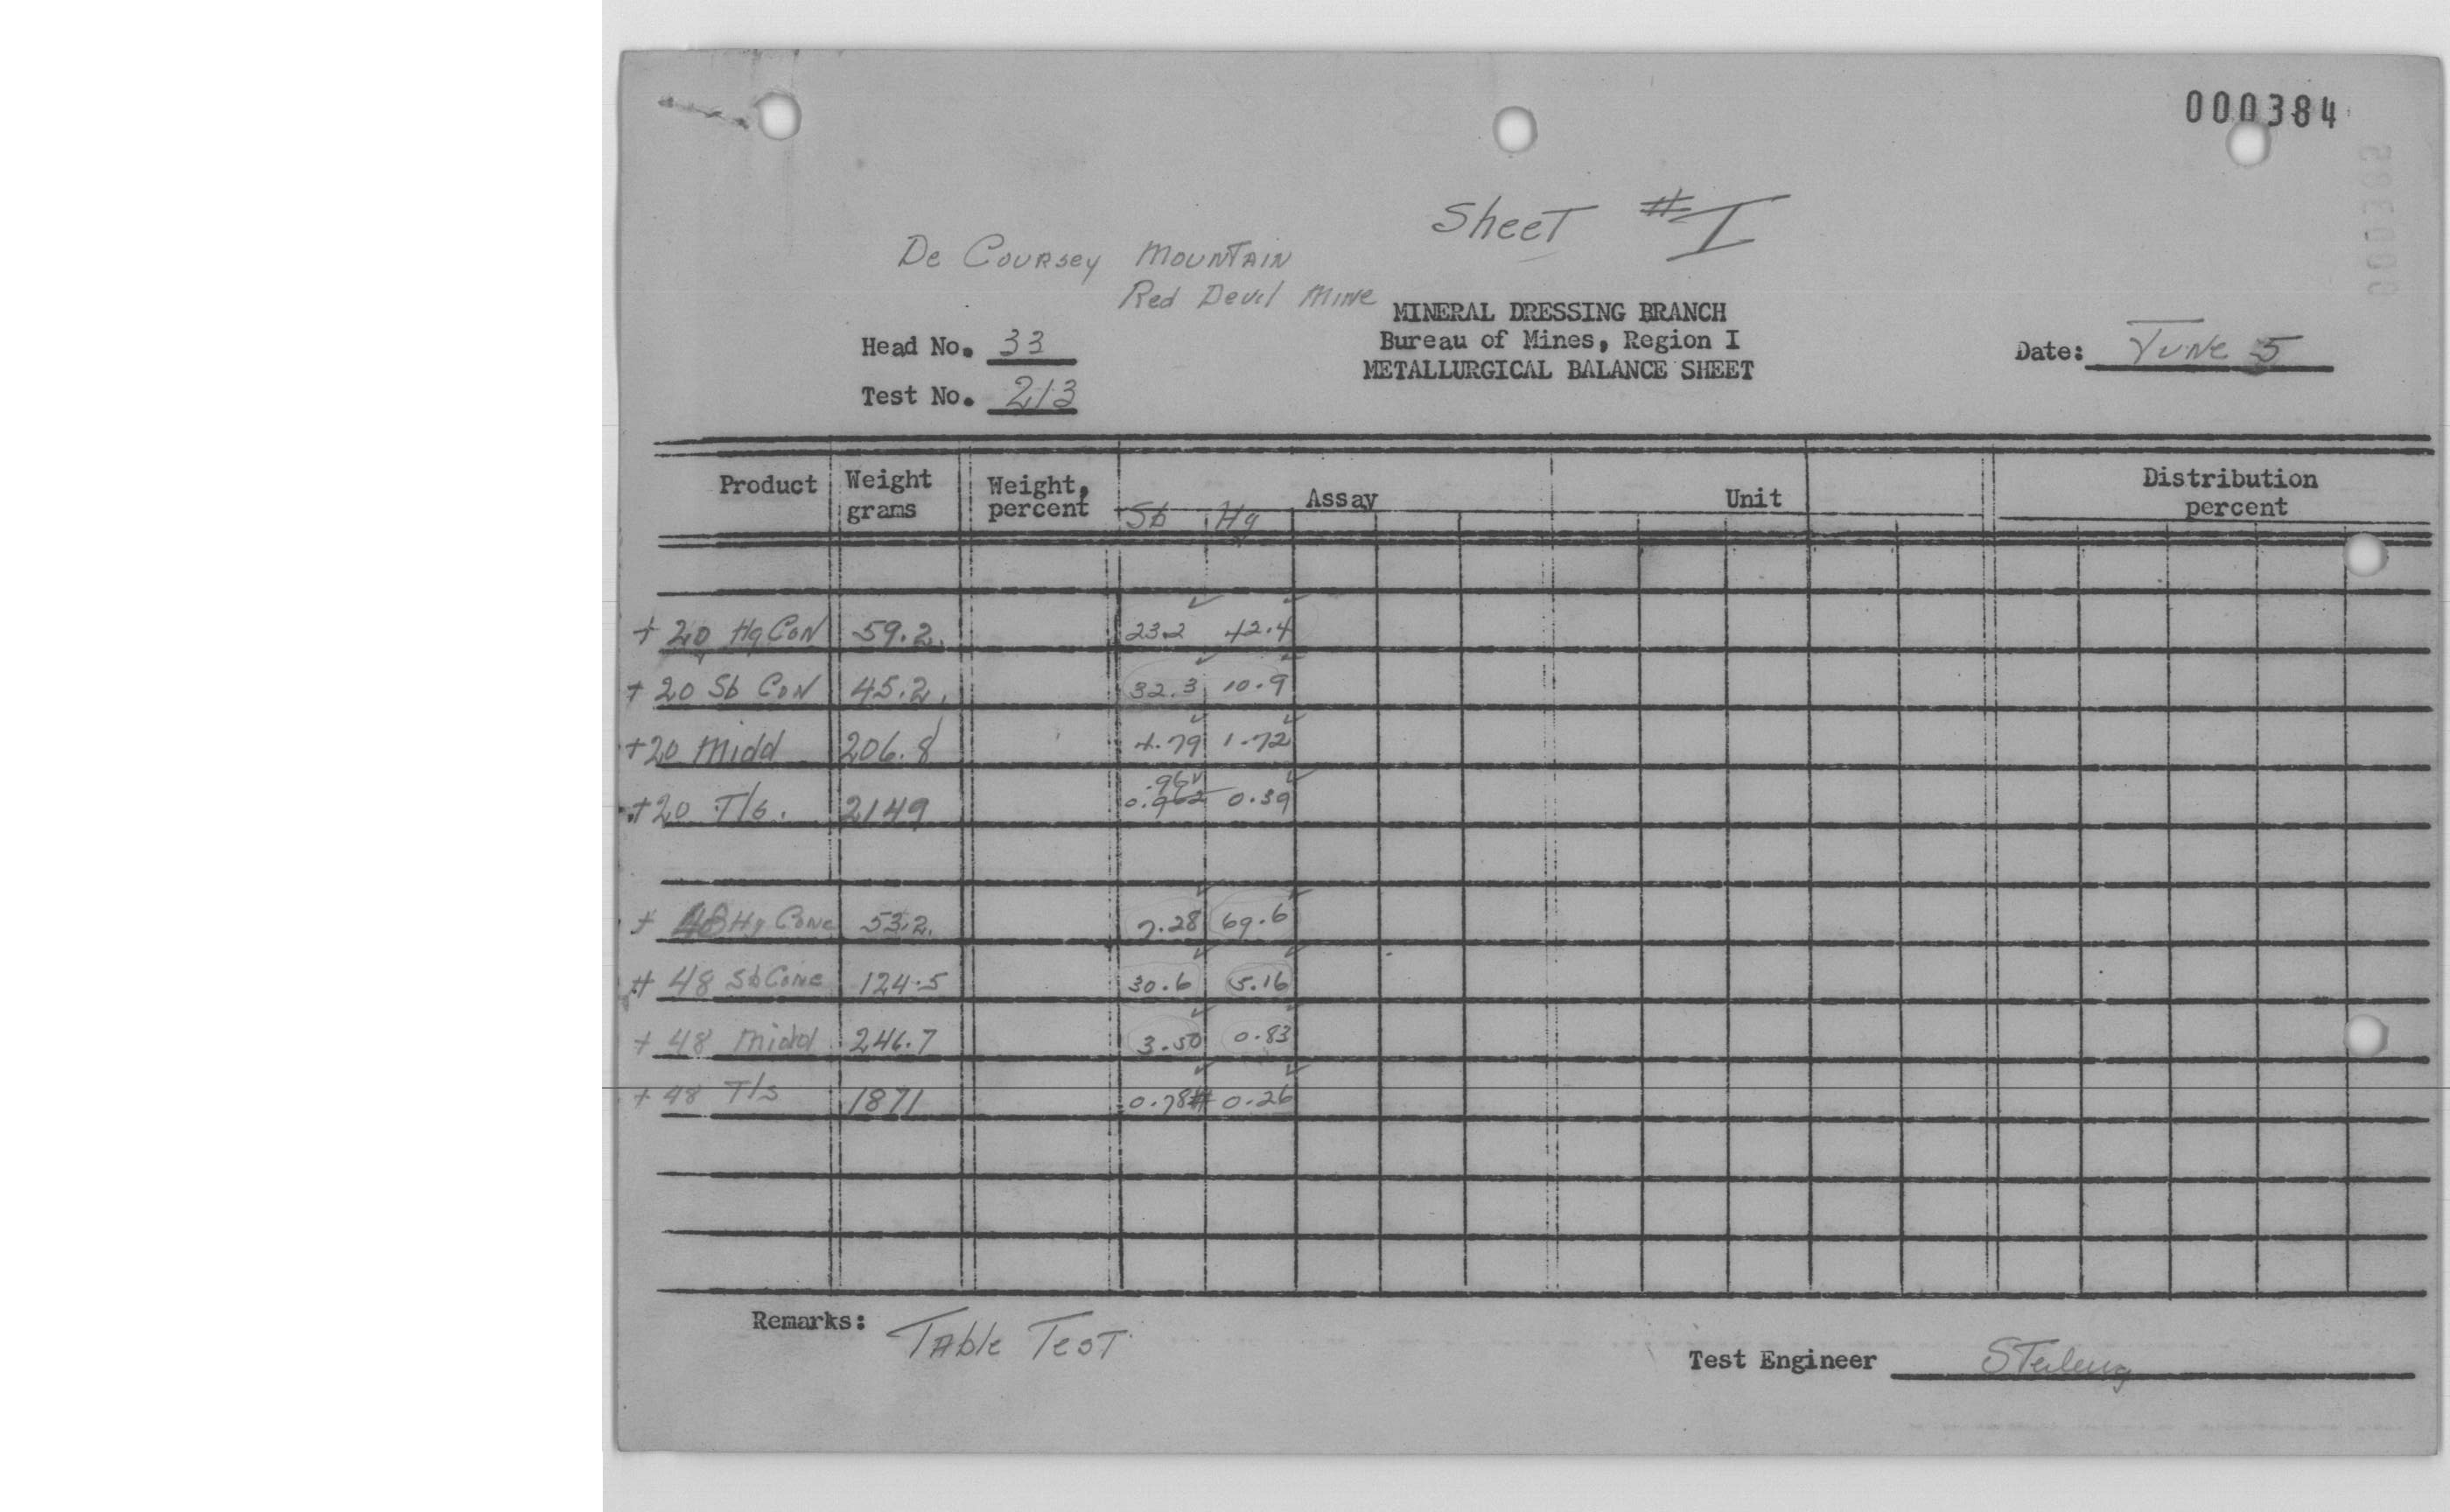 000384
Sheet #I
De Coursey Mountain
Red Devil Mine
MINERAL DRESSING BRANCH
Bureau of Mines, Region I
METALLURGICAL BALANCE SHEET
Head No. 33
Test No. 213
Date: June 5
Product Weight grams Weight, percent Assay Unit Distribution percent
Sb Hg
+ 20 Hg Con 59.2 23.2 42.4
+ 20 Sb Con 45.2 32.3 10.9
+20 Midd 206.8 4.79 1.72
.96
+20 T/s. 2149 0.962 0.39
+ 48 Hg Conc 53.2 7.28 69.6
+ 48 Sb Conc 124.5 30.6 5.16
+ 48 Midd 246.7 3.50 0.83
+ 48 T/s 1871 0.78 0.26
Remarks: Table Test
Test Engineer